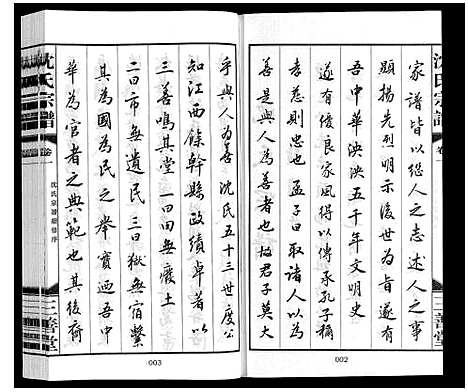 沈氏宗譜
卷一
家譜皆以繼人之志述人之事
顯揚先烈明示後世為首遂有
吾中華泱泱五千年文明史
遂有優良家風得以傳承孔子稱
孝慈則忠孟子曰取諸人以為善
善是與人為善者也故君子莫大
三善堂
乎與人為善沈氏五十三世度公
知江西餘幹縣政績卓著以
三善鳴其堂一曰田無廢土
二曰市無遺民三曰獄無宿繫
為國為民之舉實迺吾中
華為官者之典範也其後裔
沈氏宗譜
卷一
沈氏宗譜
序
三善堂
002
003